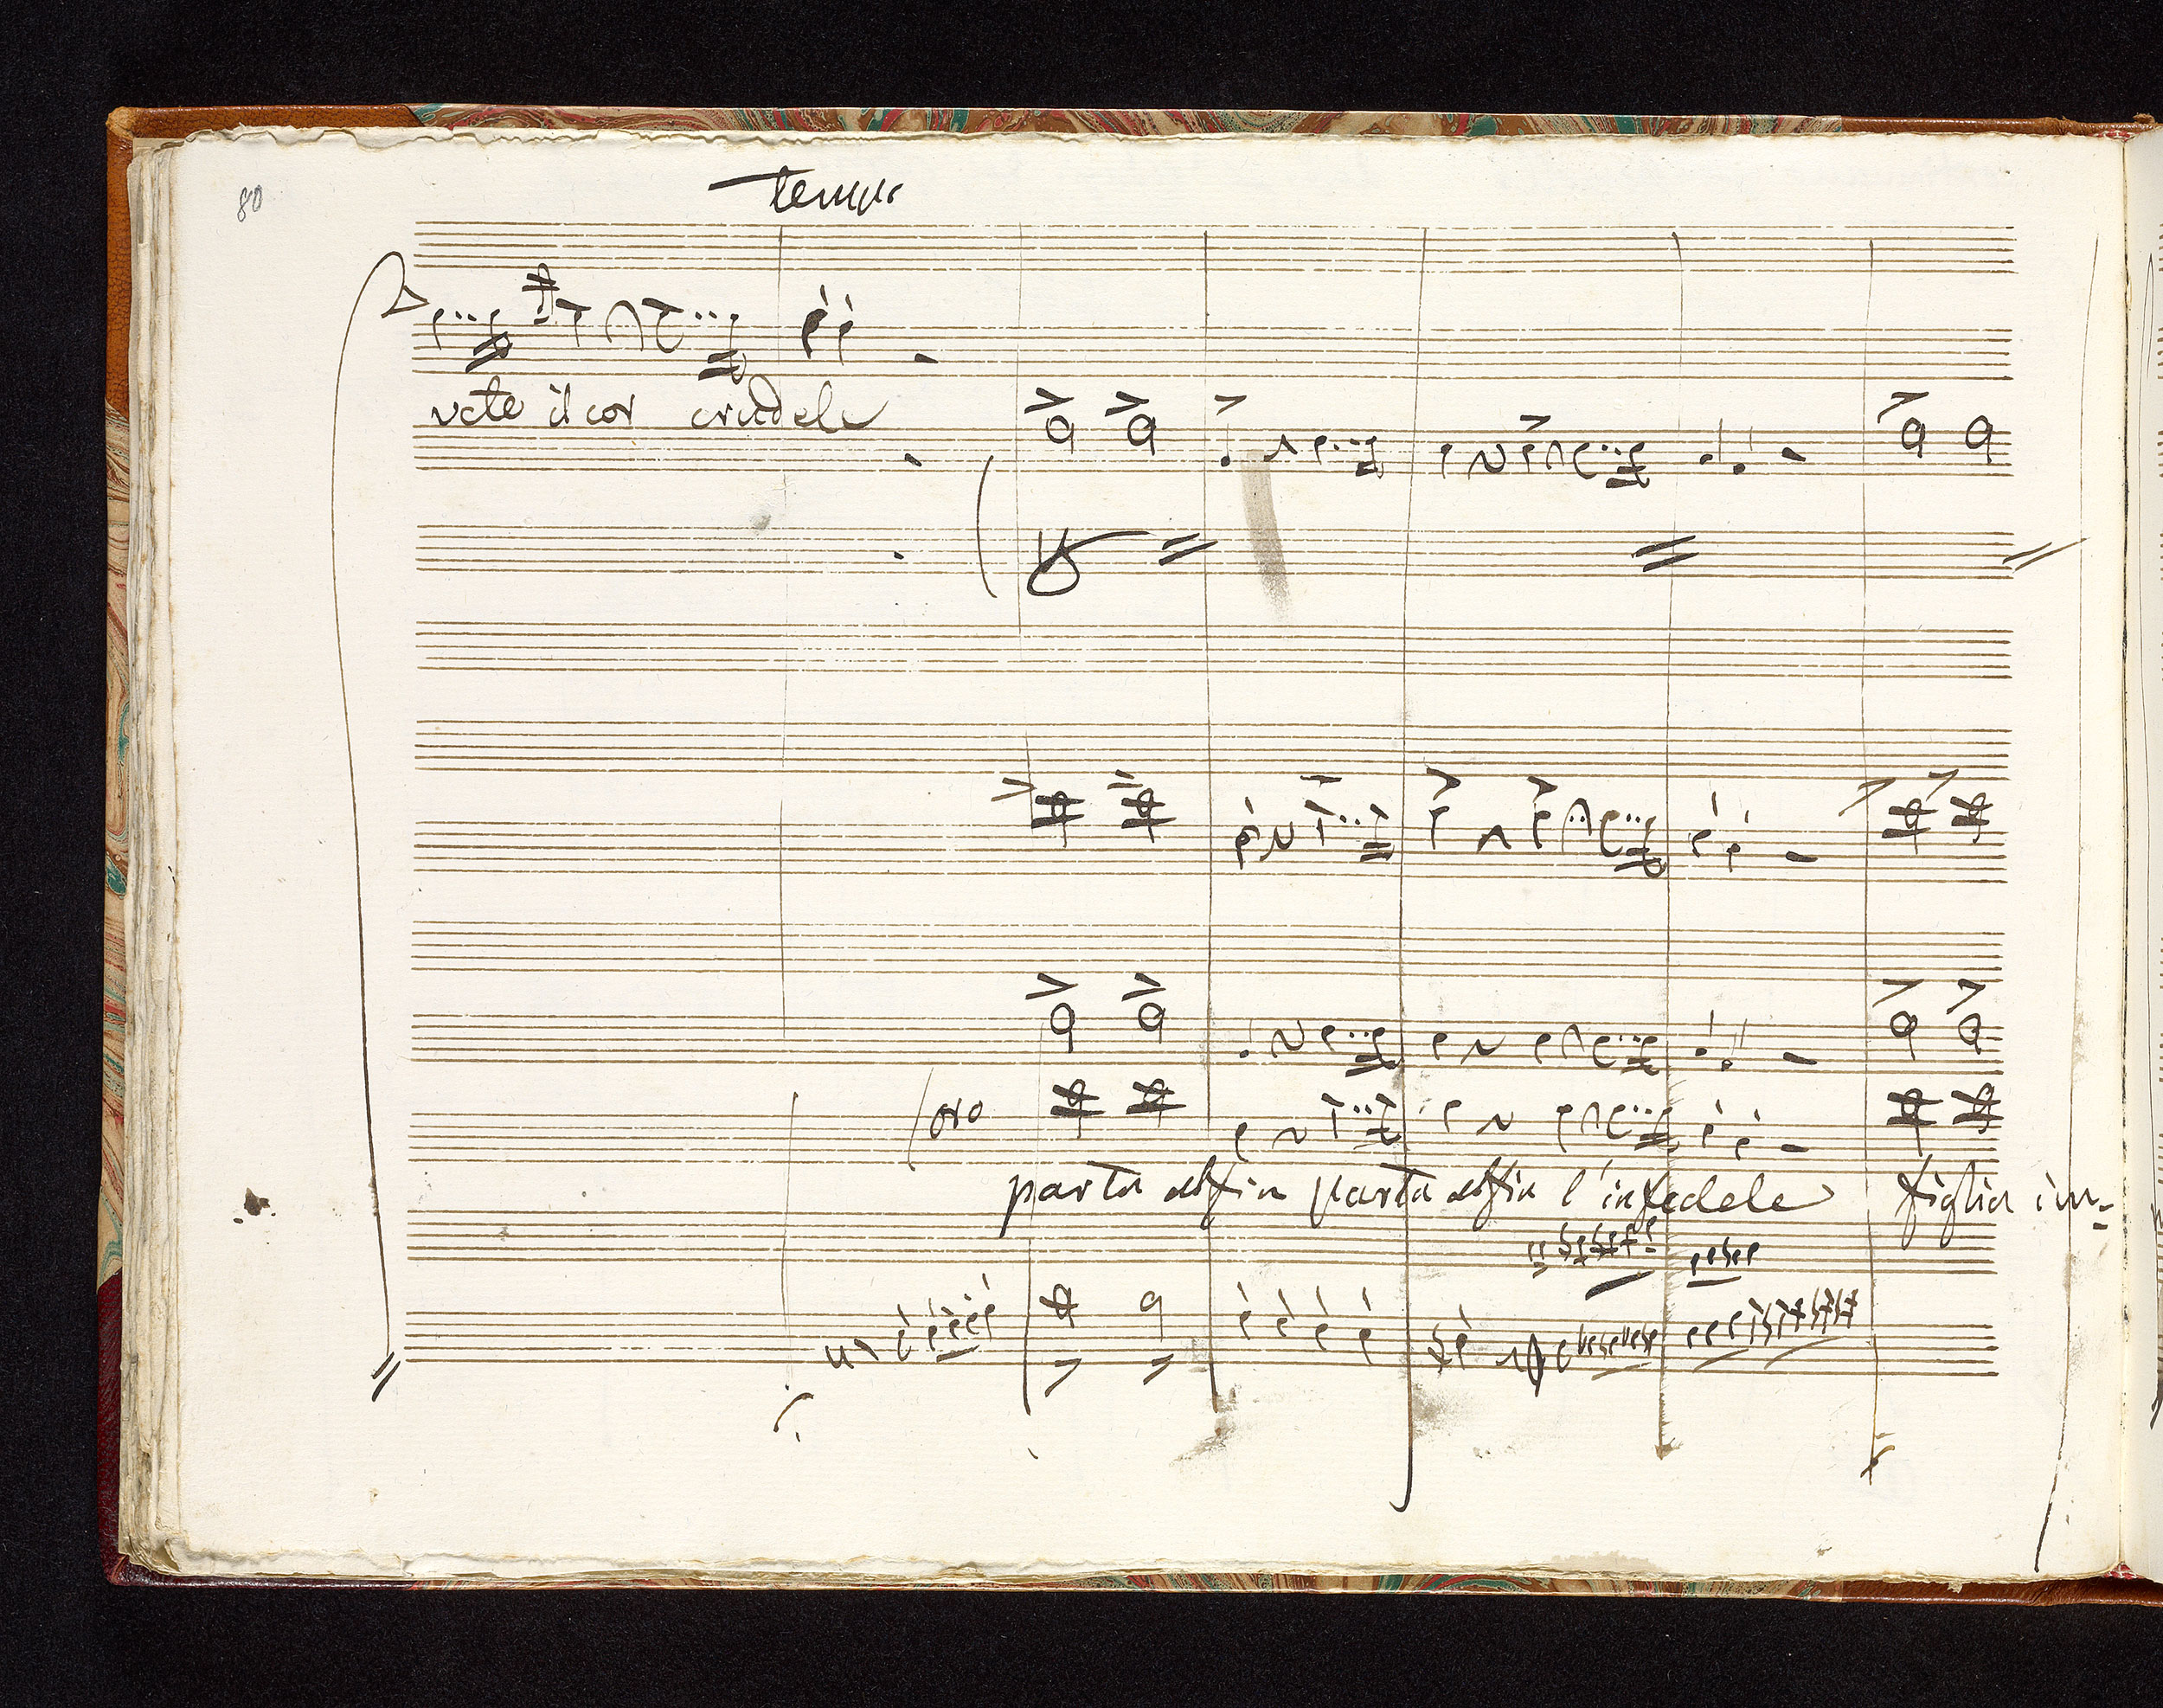 80
tempo
vete il cor crudele
parta alfin parta alfin l'infedele figlia in=